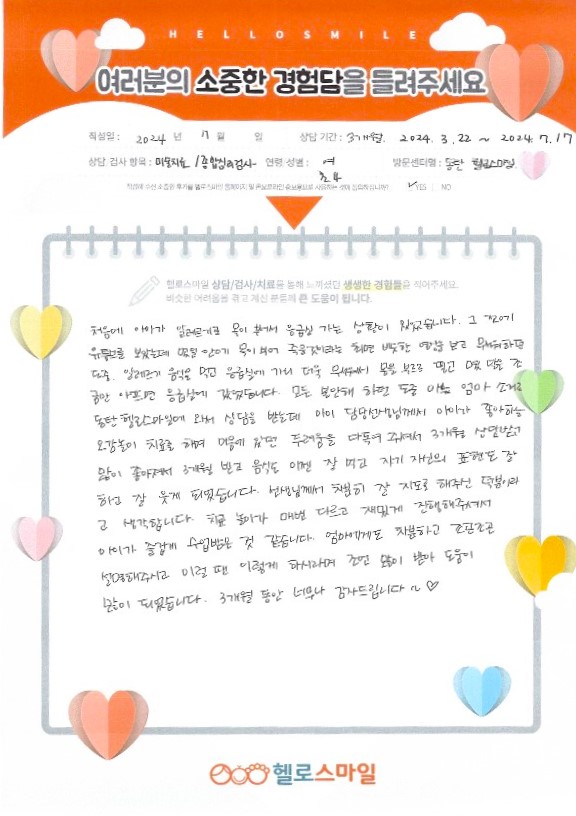 HELLOSMILE
여러분의 소중한 경험담을 들려주세요
작성일 : 2024 년 7 월 일 상담 기간 : 3개월. 2024. 3. 22 ~ 2024. 7. 17
상담·검사 항목 : 미술치료 / 종합심리검사 연령·성별 : 여 초4 방문센터명 : 동탄 헬로스마일.
YES NO
헬로스마일 상담/검사/치료를 통해 느끼셨던 생생한 경험들을 적어주세요.
비슷한 어려움을 겪고 계신 분들께 큰 도움이 됩니다.
처음에 아이가 알레르기로 목이 부어서 응급실 가는 상황이 있었습니다. 그
유튜브를 보았는데 목이 부어 비슷한 영상을 보고 무서워하던
도중. 알레르기 음식을 먹고 응급실에 가니 더욱 무서워서 조
금만 아프면 응급실에 갔었습니다. 모든 불안해 하던 도중 아는 엄마 소개로
동탄 헬로스마일에 와서 상담을 받는데 아이 담당선생님께서 아이가 좋아하는
오감놀이 치료를 해며 마음에 있던 두려움을 다독여 주셔서 3개월 상담받고
많이 좋아져서 3개월 받고 음식도 이젠 잘 먹고 자기 자신의 표현도 잘
하고 잘 웃게 되었습니다. 선생님께서 차분히 잘 지도로 해주신 덕분이라
고 생각합니다. 치료 놀이가 매번 다르고 재밌게 진행해주셔서
아이가 즐겁게 수업받은 것 같습니다. 엄마에게도 차분하고 조곤조곤
설명해주시고 이럴 땐 이렇게 하시라며 조언 많이 받아 도움이
많이 되었습니다. 3개월 동안 너무나 감사드립니다 ~ ♡
헬로스마일